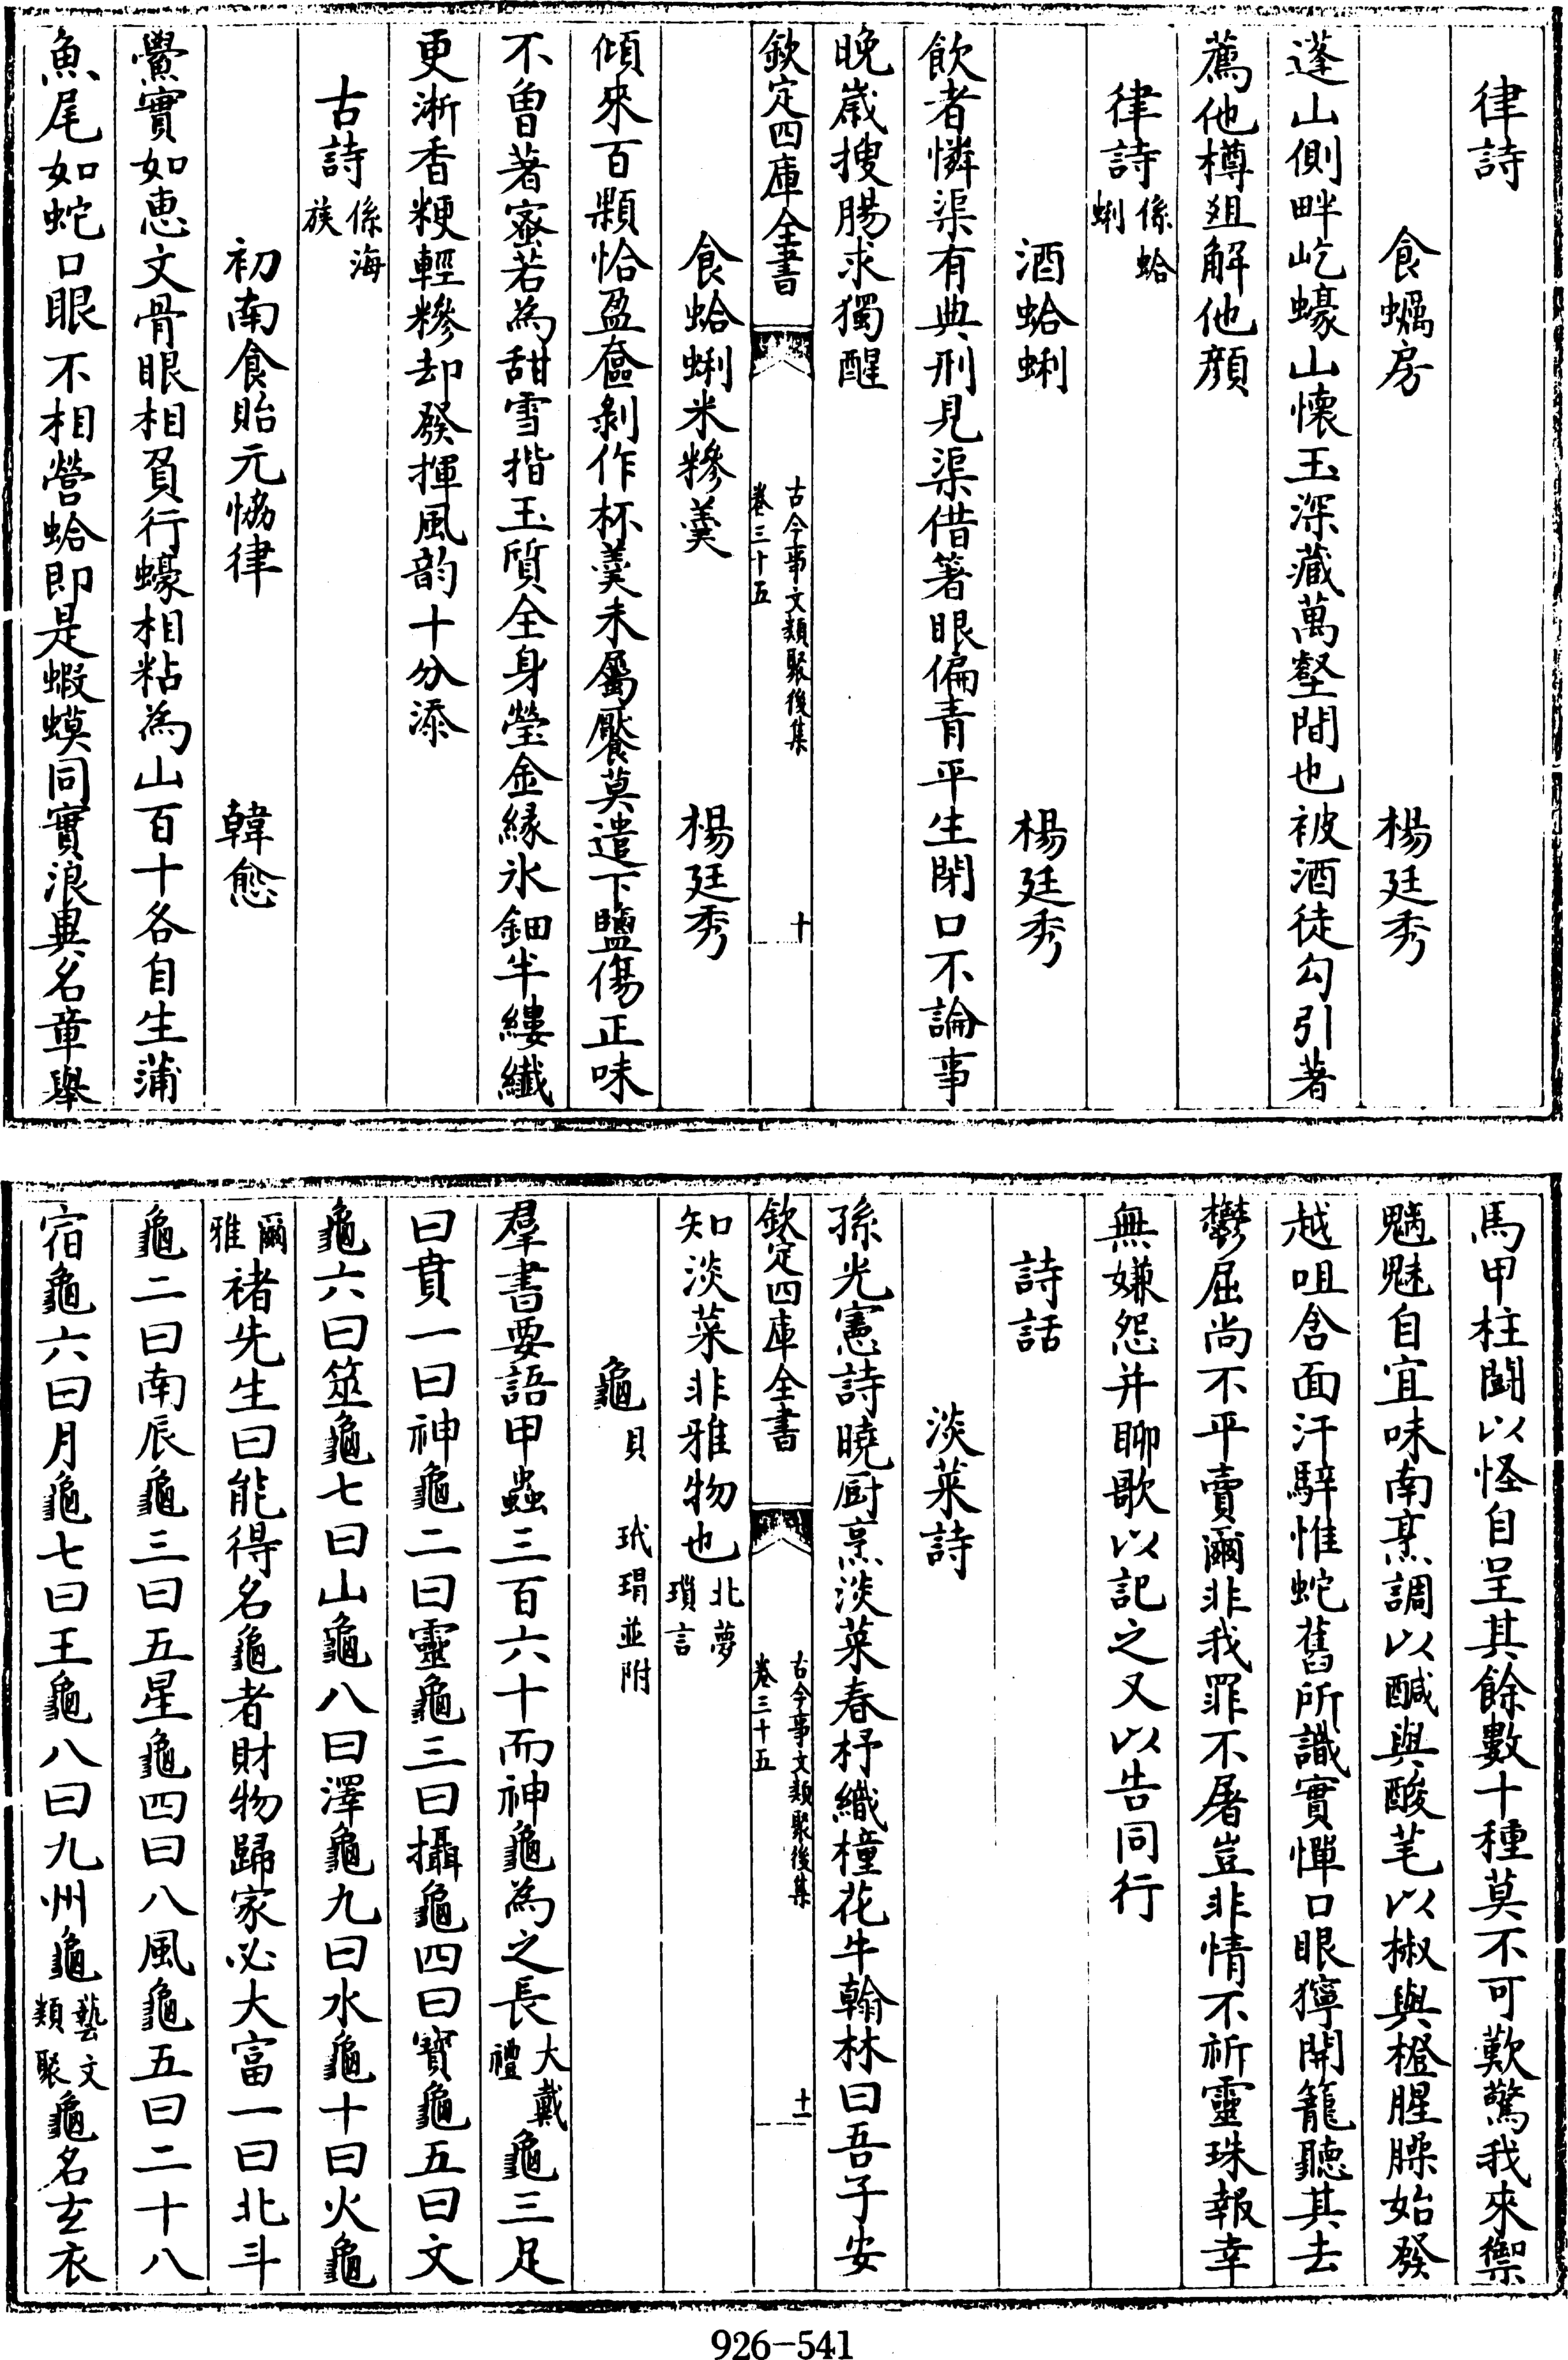 律詩
食蠣房　楊廷秀
蓬山側畔屹蠔山懷玉深藏萬壑間也被酒徒勾引著
薦他樽俎解他顔
律詩係蛤蜊
酒蛤蜊　楊廷秀
飲者憐渠有典刑見渠借箸眼偏青平生閉口不論事
晚嵗搜腸求獨醒
欽定四庫全書　古今事文類聚後集卷三十五　十
食蛤蜊米糝羹　楊廷秀
傾來百顆恰盈奩剝作杯羹未屬饜莫遣下鹽傷正味
不曽著蜜若為甜雪揩玉質全身瑩金縁氷鈿半縷纎
更淅香粳輕糝却發揮風韵十分添
古詩係海族
初南食貽元恊律　韓愈
鱟實如恵文骨眼相負行蠔相粘為山百十各自生蒲
魚尾如蛇口眼不相營蛤即是蝦蟆同實浪異名章舉
馬甲柱鬬以怪自呈其餘數十種莫不可歎驚我來禦
魑魅自宜味南烹調以醎與酸芼以椒與橙腥臊始發
越咀含面汗騂惟蛇舊所識實憚口眼獰開籠聽其去
鬱屈尚不平賣爾非我罪不屠豈非情不祈靈珠報幸
無嫌怨并聊歌以記之又以告同行
詩話
淡菜詩
孫光憲詩曉厨烹淡菜春杼織橦花牛翰林曰吾子安
欽定四庫全書　古今事文類聚後集卷三十五　十一
知淡菜非雅物也北夢瑣言
龜貝　玳瑁並附
羣書要語甲蟲三百六十而神龜為之長大戴禮龜三足
曰賁一曰神龜二曰靈龜三曰攝龜四曰寳龜五曰文
龜六曰筮龜七曰山龜八曰澤龜九曰水龜十曰火龜
爾雅褚先生曰能得名龜者財物歸家必大富一曰北斗
龜二曰南辰龜三曰五星龜四曰八風龜五曰二十八
宿龜六曰月龜七曰王龜八曰九州龜藝文類聚龜名玄衣
926-541